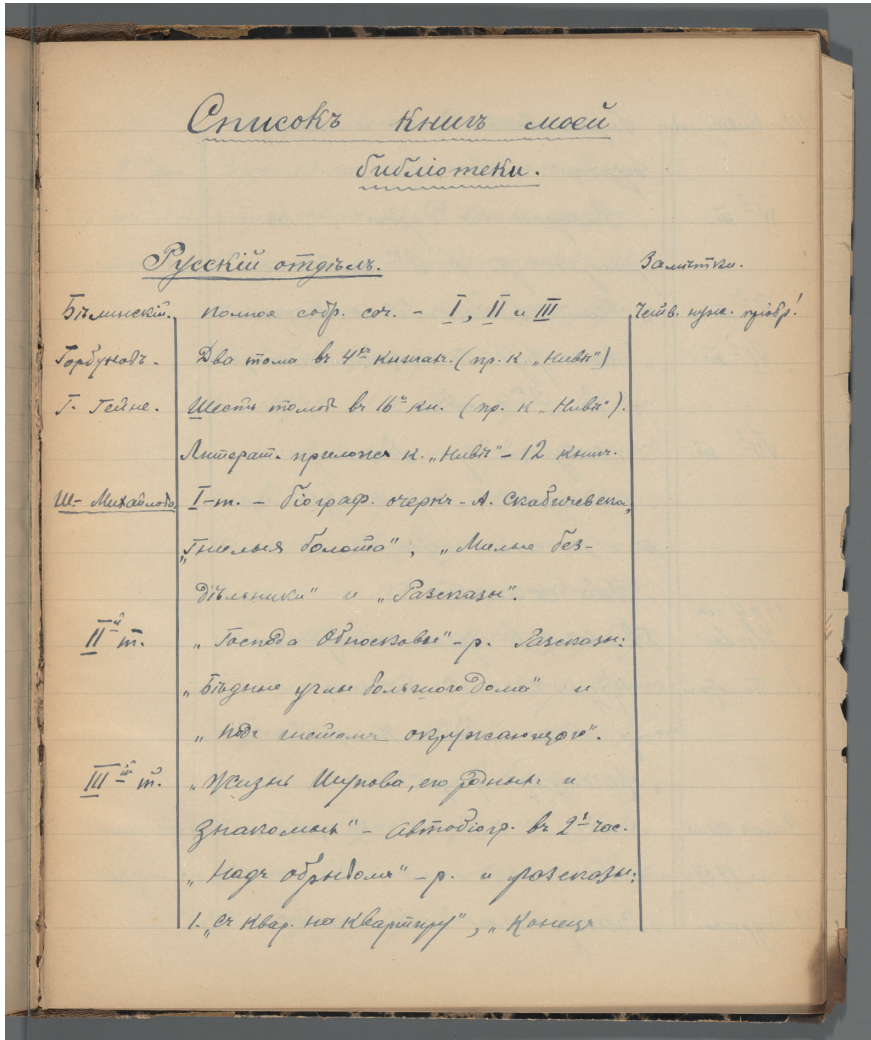 Списокъ книгъ моей
библіотеки.
Русскій отдѣлъ. Замѣтки.
Бѣлинскій. Полное собр. соч. - I, II и III Четв. нуж. пріобр!
Горбуновъ. Два тома въ 4хъ книгах. (пр. к „Нивѣ")
Г. Гейне. Шесть томовъ въ 16и кн. (пр. к „Нивѣ").
Литерат. приложен. к. „Нивѣ" - 12 книг.
Ш.- Михайловъ. I-т. - біограф. очеркъ - А. Скабичевска,
„Гнилыя болота", „Милые без-
дѣльники" и „Разсказы".
IIй т. „Господа Обносковы" - р. Разсказы:
„Бѣдные углы большого дома" и
„Подъ гнетомъ окружающаго".
IIIй т. „Жизнь Шупова, его родныхъ и
знакомыхъ" - Автобіогр. въ 2хъ час.
„Надъ обрывомъ" - р. и разсказы:
1. „Съ квар. на квартиру", „Конецъ